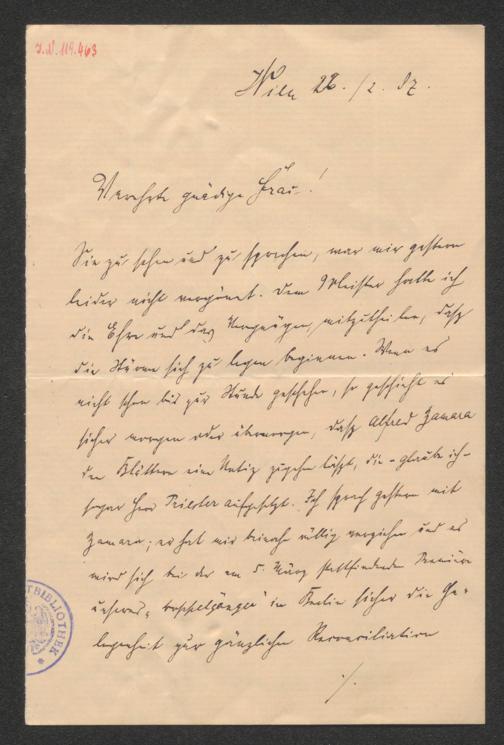 I.N. 119.463
Wien 28./2. 87.
Verehrte gnädige Frau!
Sie zu sehen und zu sprechen, war mir gestern
leider nicht vergönnt. Dem Meister hatte ich
die Ehre und das Vergnügen, mitzutheilen, dass
die Stürme sich zu legen beginnen. Wenn es
nicht schon bis zur Stunde geschehen, so geschieht es
sicher morgen oder übermorgen, dass Alfred Zamara
den Blättern eine Notiz zugehen lässt, die – glaube ich –
sogar Herr Priester aufgesetzt. Ich sprach gestern mit
Zamara; er hat mir beinahe völlig verziehen und es
wird sich bei der am 5. März stattfindenden Première
unseres „Doppelgänger" in Berlin sicher die Ge-
legenheit zur gänzlichen Reconciliation
./.
TBIBLIOTHEK